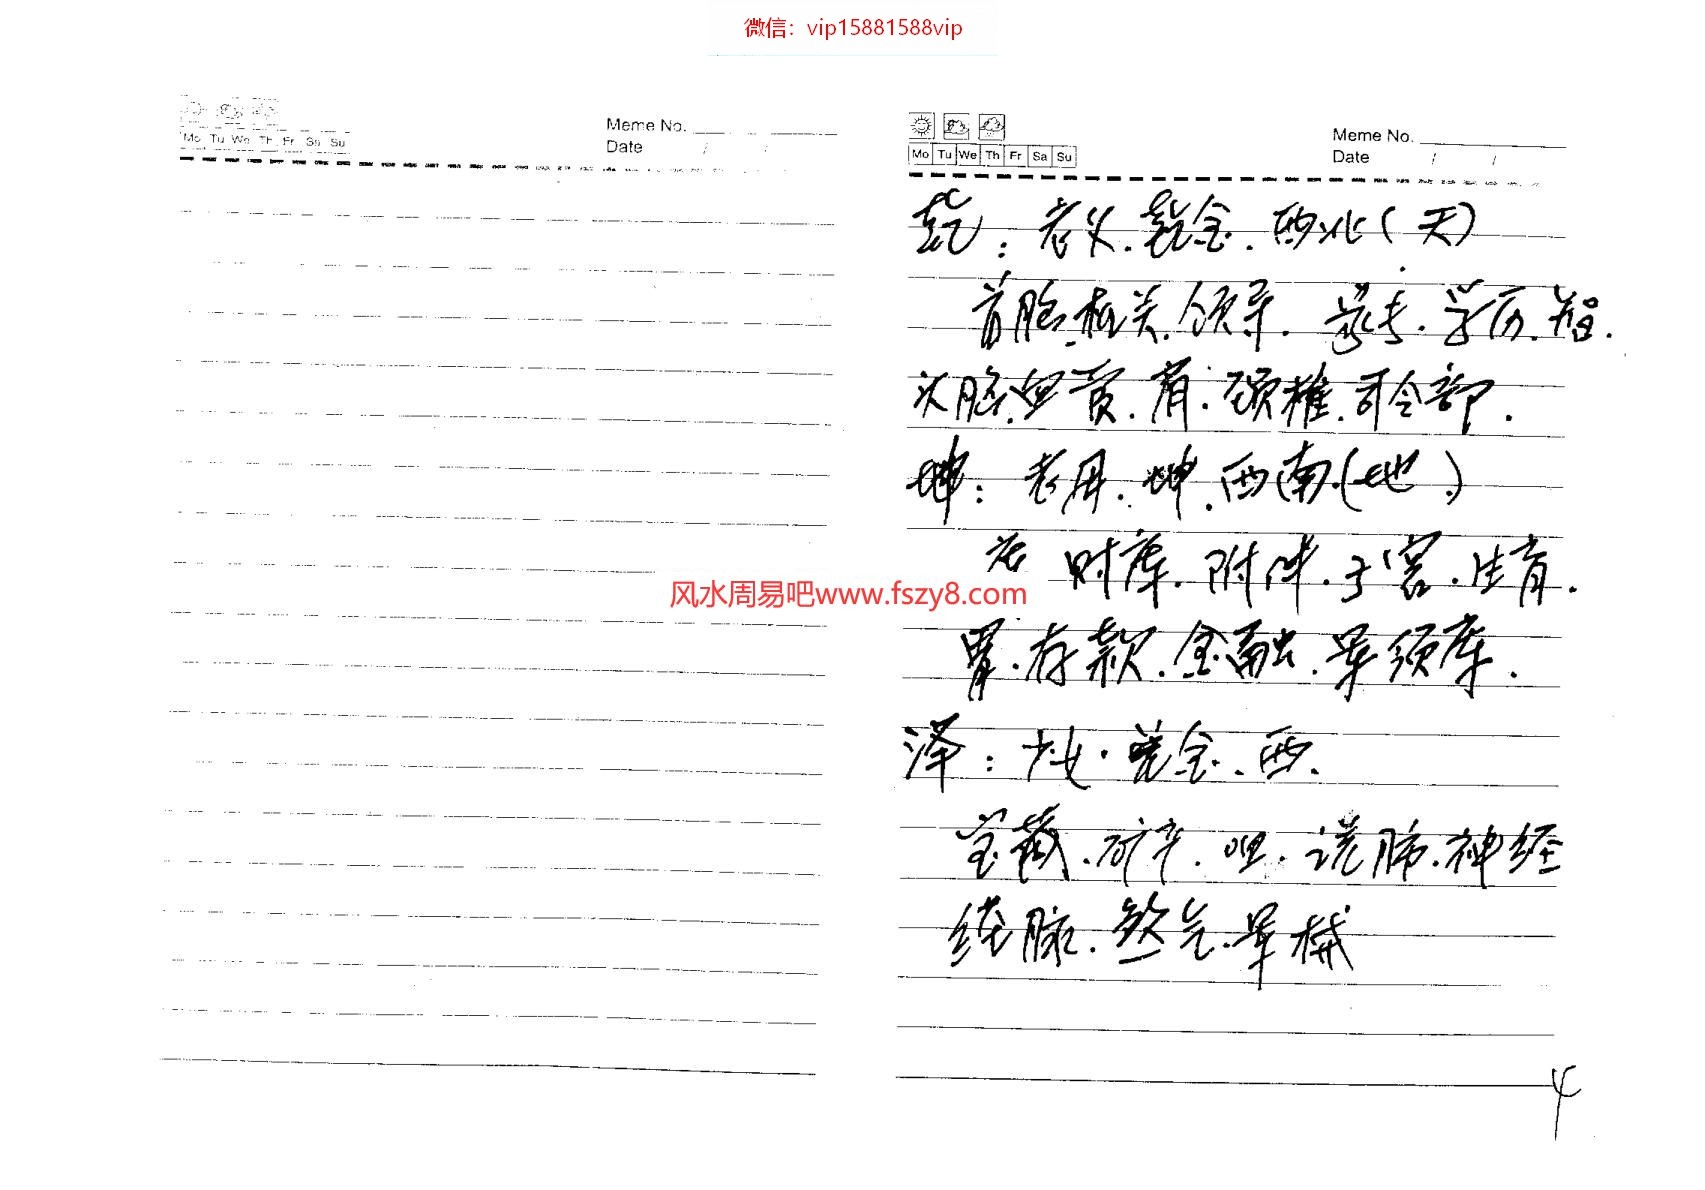 微信：vip15881588vip
Mo Tu We Th Fr Sa Su
Meme No.
Date / /
Mo Tu We Th Fr Sa Su
Meme No.
Date / /
乾：老父．乾金．西北（天）
首脑．机关．领导．学历．
头脑．颈椎．司令部．
坤：老母．坤．西南．（地．）
财库．附件．子宫．生育．
风水周易吧www.fszy8.com
胃．存款．金融．库．
泽：少女．兑金．西．
宝藏．矿产．咀．肺．神经
脉．气．械
4